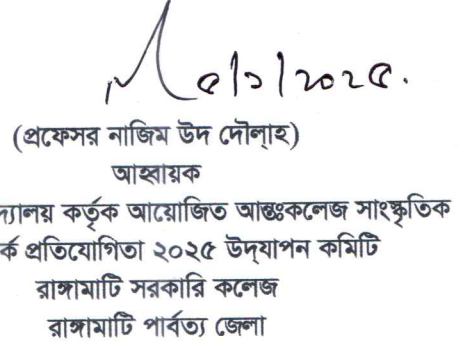 ৫/১/২০২৫.
(প্রফেসর নাজিম উদ দৌল্লাহ)
আহ্বায়ক
দ্যালয় কর্তৃক আয়োজিত আন্তঃকলেজ সাংস্কৃতিক
র্ক প্রতিযোগিতা ২০২৫ উদ্‌যাপন কমিটি
রাঙ্গামাটি সরকারি কলেজ
রাঙ্গামাটি পার্বত্য জেলা